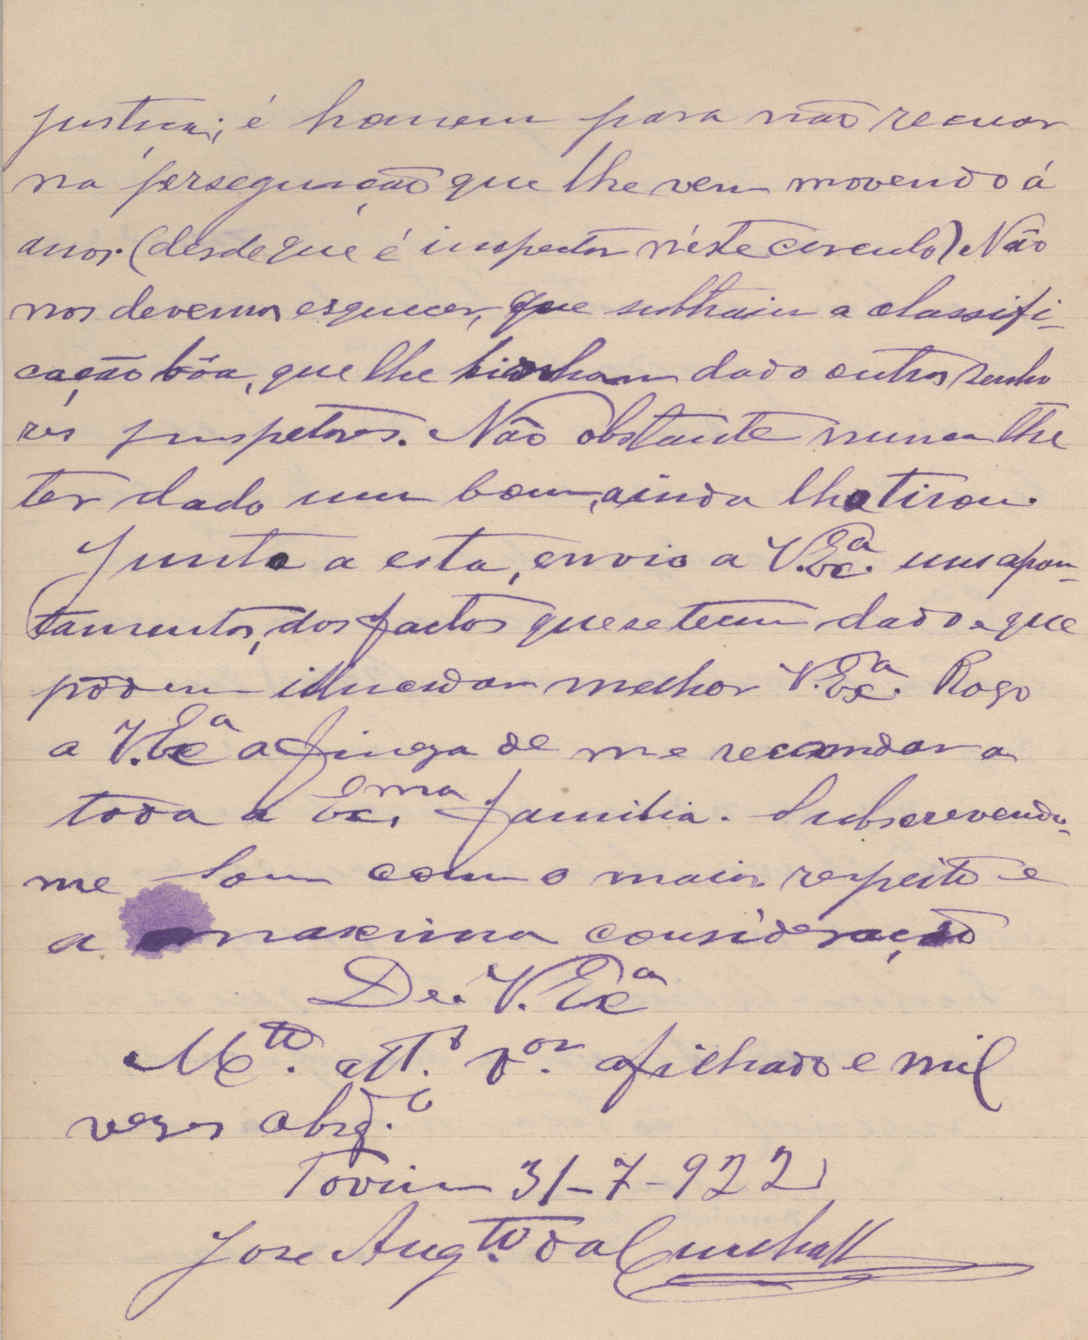 justiça; é homem para não recuar
na perseguição que lhe vem movendo á
anos. (desde que é inspector n'éste circulo) Não
nos devemos esquecer, que subtraiu a classifi-
cação bôa, que lhe tinham dado outros senho
res inspetores. Não obstante nunca lhe
ter dado um bom, ainda lho tirou.
Junto a esta, envio a V. Exª. uns apon-
tamentos, dos factos que se teem dado e que
pódem elucidar melhor V. Exª. Rogo
a V. Exª a fineza de me recomdar a
toda a Exma. familia. Subscrevendo-
me Sou com o maior respeito e
a maxima consideração
De V. Exª
Mto. attº vor. afilhado e mil
vezes obrgº.
Tovim 31-7-922
Jose Augto. da Cunha